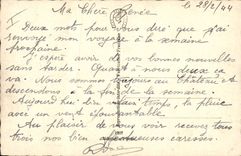 le 28/2/44
Ma Chère Renée
Deux mots pour vous dire que j'ai
renvoyé mon voyage à la semaine
prochaine.
J'espère avoir de vos bonnes nouvelles
sans tarder. Quant à nous deux ça
va. Nous sommes toujours au Château et
descendons à la fin de la semaine.
Aujourd'hui vilain temps, la pluie
avec un vent épouvantable.
Au plaisir de vous voir recevez tous
trois nos bien affectueuses caresses.